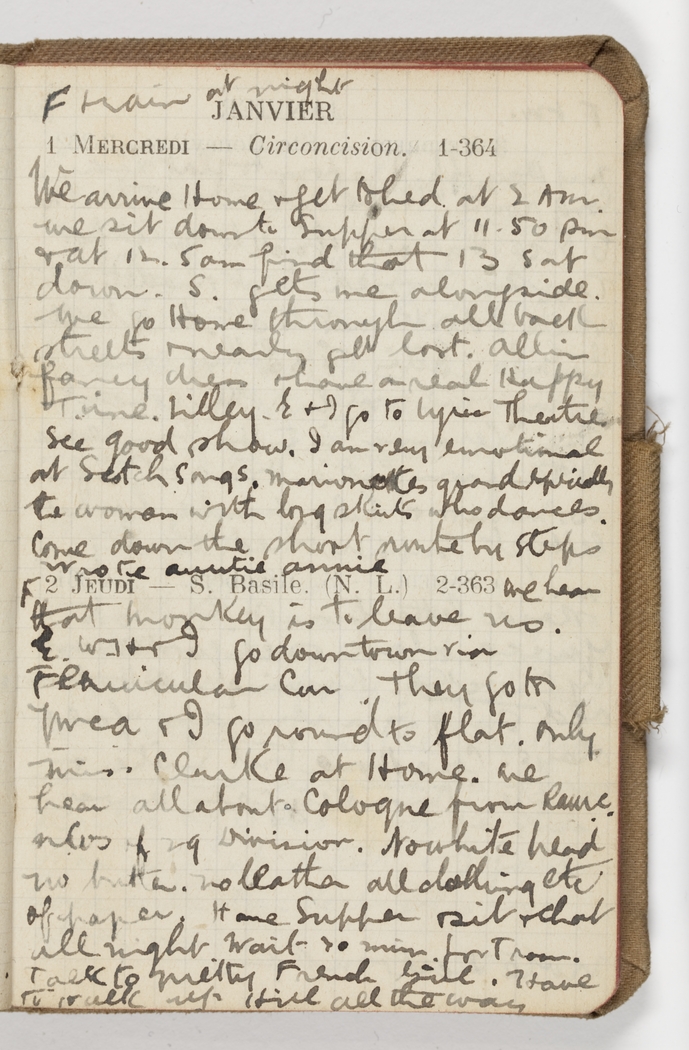 F rain at night
JANVIER
1 MERCREDI — Circoncision. 1-364
We arrive Home & get to bed. at 2 Am.
we sit down to Supper at 11.50 pm
& at 12.5am find that 13 sat
down. S. gets me alongside.
We go Home through all back
streets & nearly get lost. All in
fancy dress & have a real Happy
Time. Lilley. E & I go to Lyric Theatre
See good show. I am very emotional
at Scotch Songs. marionettes grand specially
the woman with long skirts who dances.
Come down the short route by steps
wrote auntie annie
F 2 JEUDI — S. Basile. (N. L.) 2-363 we hear
that monkey is to leave us.
E. & I go down town via
Funicular Car. They go to
Ymca & I go round to flat. Only
miss. Clarke at Home. we
hear all about Cologne from
of 29 Division. No white bread
no butter. no leather all clothing etc
of paper. Have Supper & sit & chat
all night Wait 20 min. for Tram.
Talk to pretty French Girl. Have
to walk up Hill all the way